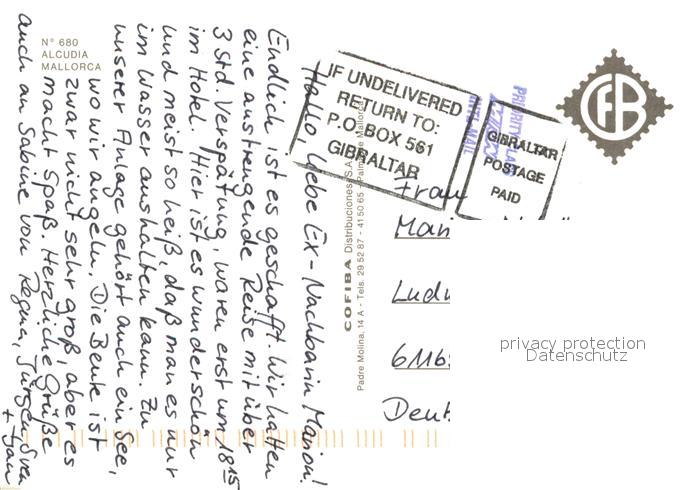 N° 680
ALCUDIA
MALLORCA
Hallo, liebe Ex-Nachbarin Marion!
Endlich ist es geschafft. Wir hatten
eine anstrengende Reise mit über
3 Std. Verspätung, waren erst um 18 15
im Hotel. Hier ist es wunderschön
und meist so heiß, daß man es nur
im Wasser aushalten kann. Zu
unserer Anlage gehört auch ein See,
wo wir angeln. Die Beute ist
zwar nicht sehr groß, aber es
macht Spaß. Herzliche Grüße
auch an Sabine von Regina, Jürgen, Sven
+ Jan
COFIBA Distribuciones (S.A.
Padre Molina, 14 A - Tels. 29 52 87 - 41 50 65 - Palma de Mallorca
IF UNDELIVERED
RETURN TO:
P.O. BOX 561
GIBRALTAR
PRIORITY/LAS
INTL-MAIL
GIBRALTAR
POSTAGE
PAID
CFB
Frau
Mari
Ludw
Deut
privacy protection
Datenschutz